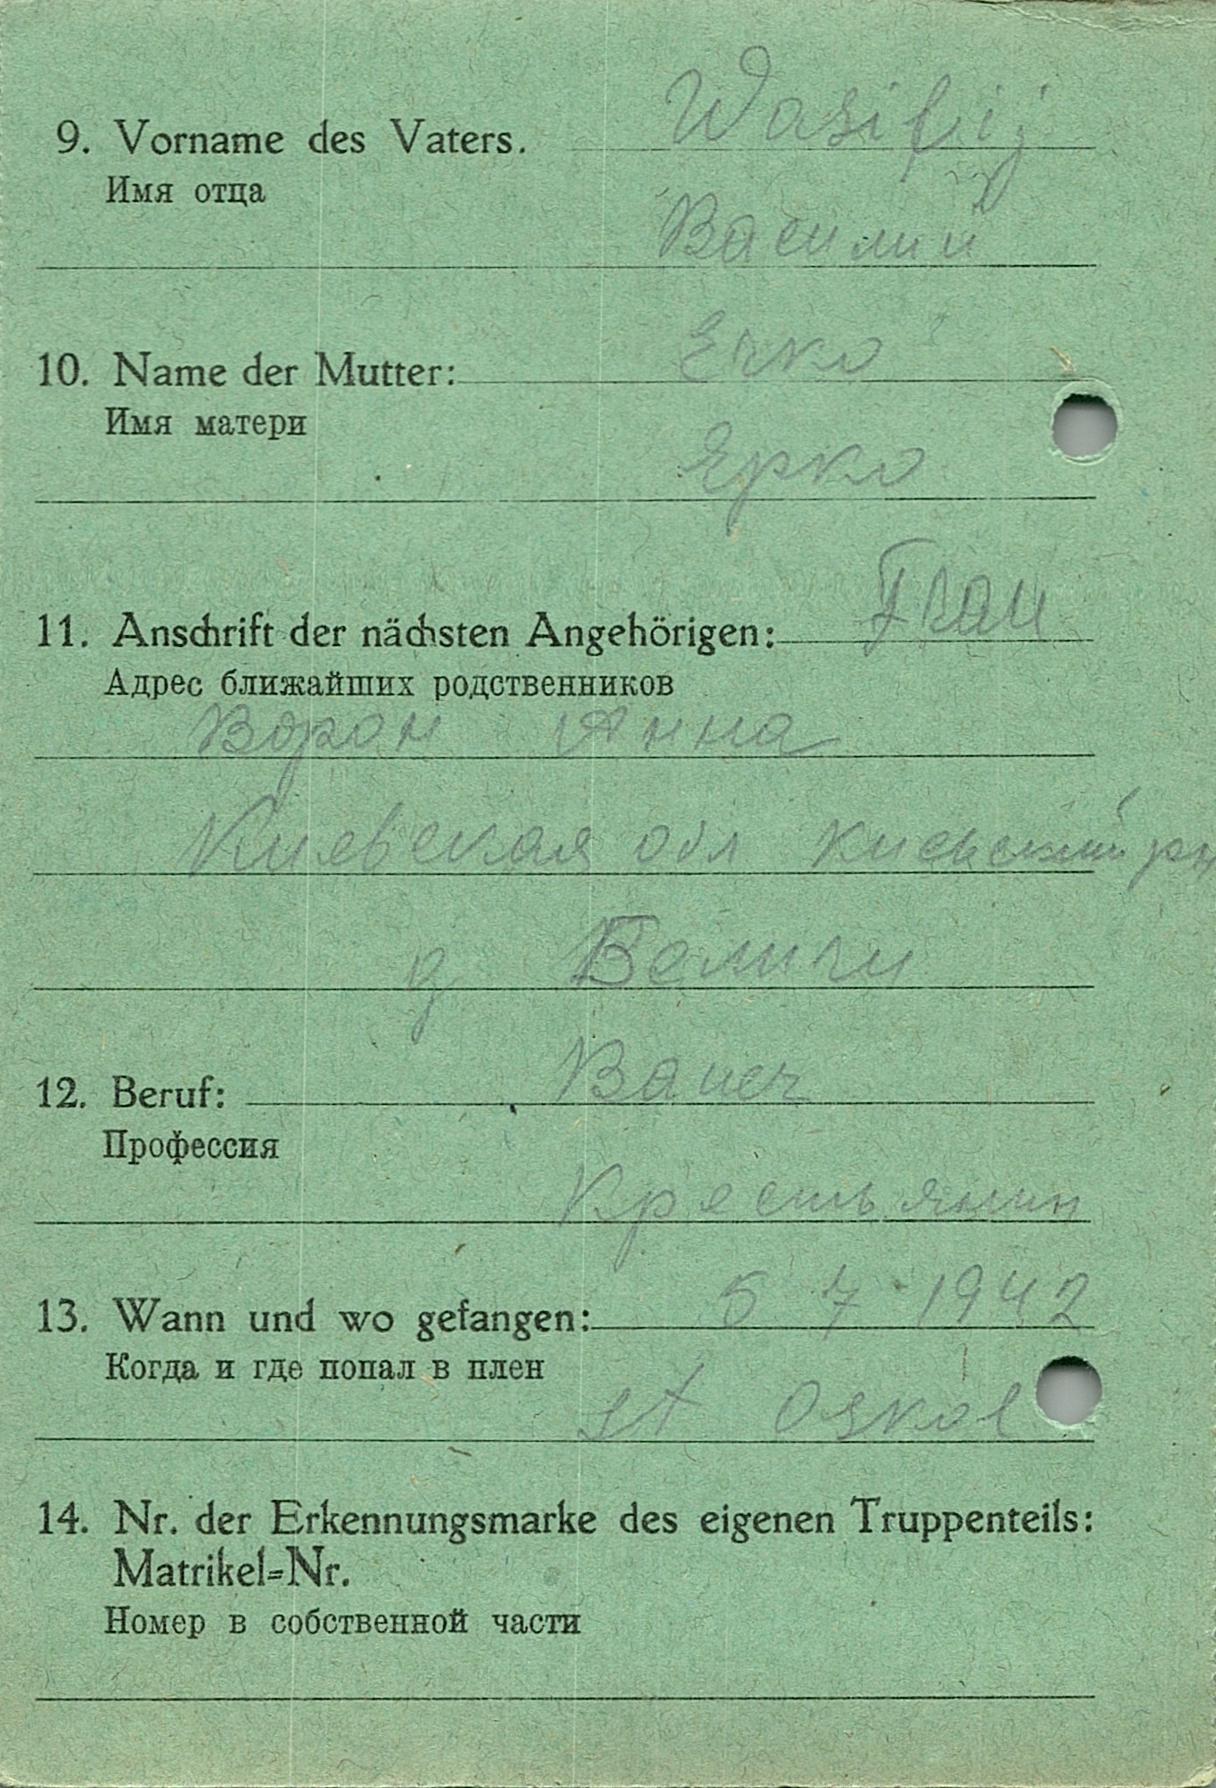 9. Vorname des Vaters. Wasilij
Имя отца
Василий
10. Name der Mutter: Erko
Имя матери
Ерко
11. Anschrift der nächsten Angehörigen: Frau
Адрес ближайших родственников
Ворон Анна
Киевская обл Киевский рн
д Беличи
12. Beruf: Bauer
Профессия
Крестьянин
13. Wann und wo gefangen: 5 7 1942
Когда и где попал в плен
st Oskol
14. Nr. der Erkennungsmarke des eigenen Truppenteils:
Matrikel=Nr.
Номер в собственной части